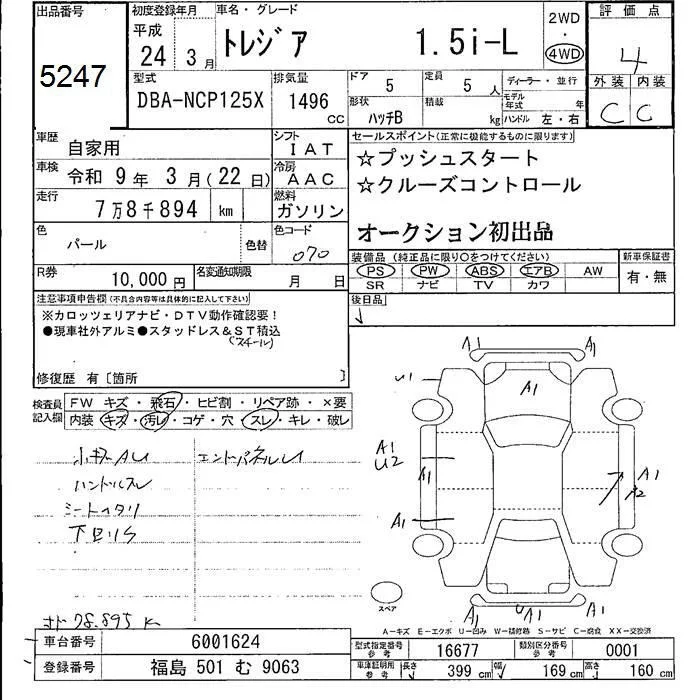 出品番号
5247
初度登録年月
平成
24 年 3 月
車名・グレード
トレジア 1.5i-L
2WD
・
4WD
評価点
4
外装 内装
C C
型式
DBA-NCP125X
排気量
1496 CC
ドア 5
定員 5 人
形状 ハッチB
積載 kg
ディーラー・並行
モデル年式 年
ハンドル 左・右
車歴
自家用
シフト
IAT
車検
令和 9年 3月(22日)
冷房
AAC
走行
7万8千894 km
燃料
ガソリン
色
パール
色替
色コード
070
セールスポイント(正常に機能するものに限ります)
☆プッシュスタート
☆クルーズコントロール
オークション初出品
装備品(純正品に限り○をつけてください)
PS PW ABS エアB AW
SR ナビ TV カワ
新車保証書
有・無
R券
10,000 円
名変通知期限
月 日
後日品
注意事項申告欄(不具合内容等は具体的に記入して下さい)
※カロッツェリアナビ・DTV動作確認要!
●現車社外アルミ●スタッドレス&ST積込
(スチール)
修復歴 有〔箇所 〕
検査員記入欄
FW キズ・飛石・ヒビ割・リペア跡・×要
内装 キズ・汚レ・コゲ・穴・スレ・キレ・破レ
小キズAU
エンドパネルU
ハンドルスレ
シートヘタリ
下回りS
オド 78.895 K
A1 A1
A1
U1
A1
U2
A1
A1
A1
A2
スペア
A1 UA1 A1
A-キズ E-エクボ U-凹み W-補修跡 S-サビ C-腐食 XX-交換済
車台番号
6001624
登録番号
福島 501 む 9063
型式指定番号 参考
16677
類別区分番号 参考
0001
車庫証明用 参考
長さ 399 cm 幅 169 cm 高さ 160 cm